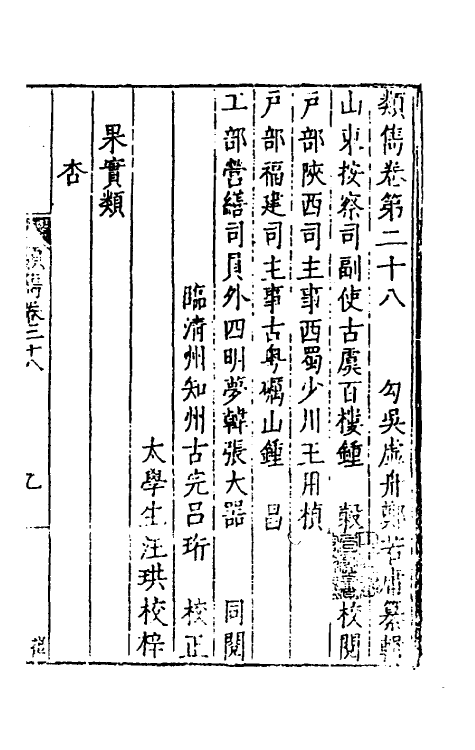 類雋卷第二十八　勾吳虛舟鄭若庸纂輯
山東按察司副使古虞百樓鍾　穀　校閱
戶部陝西司主事西蜀少川王用楨
戶部福建司主事古粤礪山鍾　昌
工部營繕司員外四明夢韓張大器　同閱
臨清州知州古完呂珩　校正
太學生汪珙校梓
果實類
杏
類雋卷二十八